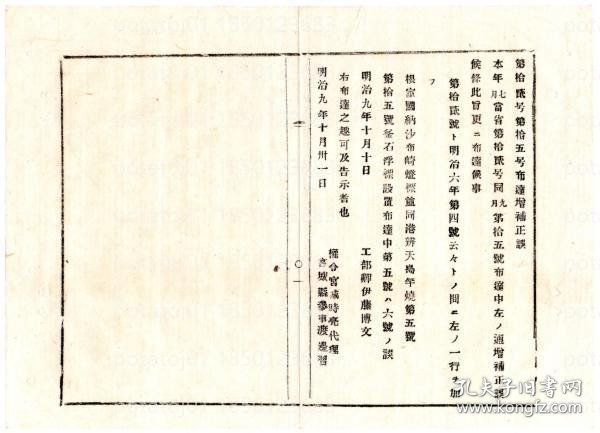 第拾貳号第拾五号布達増補正誤
本年七月當省第拾貳号同九月第拾五號布達中左ノ通増補正誤
候條此旨更ニ布達候事
第拾貳號ト明治六年第四號云々トノ間ニ左ノ一行ヲ加
フ
根室國納沙布﨑燈標並同港辨天島年燒第五號
第拾五號釜石浮標設置布達中第五號ハ六號ノ誤
明治九年十月十日
工部卿伊藤博文
右布達之趣可及告示者也
明治九年十月卅一日
權令宮城時亮代理
宮城縣參事渡邊習
孔夫子旧书网
www.kongfz.com